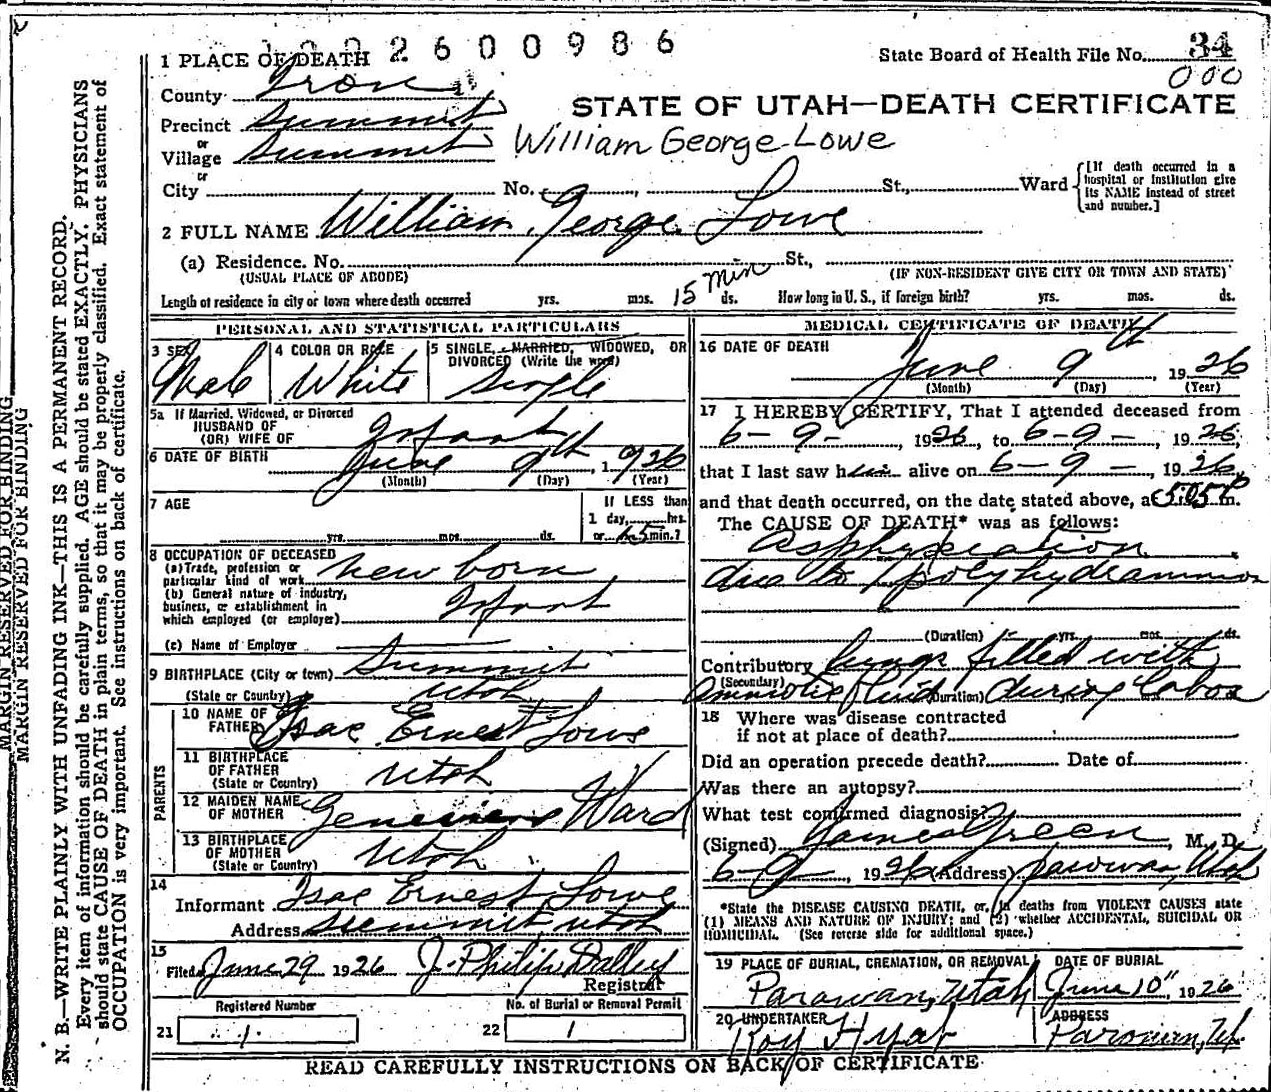 1002600986
State Board of Health File No. 34
000
1 PLACE OF DEATH
County Iron
STATE OF UTAH—DEATH CERTIFICATE
Precinct Summit
or
Village Summit
William George Lowe
or
City No. St., Ward
[If death occurred in a hospital or institution give its NAME instead of street and number.]
2 FULL NAME William George Lowe
(a) Residence. No. St.,
(USUAL PLACE OF ABODE) (IF NON-RESIDENT GIVE CITY OR TOWN AND STATE)
Length of residence in city or town where death occurred yrs. mos. 15 min ds. How long in U. S., if foreign birth? yrs. mos. ds.
PERSONAL AND STATISTICAL PARTICULARS
3 SEX Male
4 COLOR OR RACE White
5 SINGLE, MARRIED, WIDOWED, OR DIVORCED (Write the word) Single
5a If Married, Widowed, or Divorced
HUSBAND OF
(OR) WIFE OF Infant
6 DATE OF BIRTH June 9th, 1926
(Month) (Day) (Year)
7 AGE yrs. mos. ds.
If LESS than
1 day, hrs.
or 15 min.?
8 OCCUPATION OF DECEASED
(a) Trade, profession or
particular kind of work New born
(b) General nature of industry,
business, or establishment in
which employed (or employer) Infant
(c) Name of Employer
9 BIRTHPLACE (City or town) Summit
(State or Country) Utah
PARENTS
10 NAME OF
FATHER Isac Ernest Lowe
11 BIRTHPLACE
OF FATHER
(State or Country) Utah
12 MAIDEN NAME
OF MOTHER Genevieve Ward
13 BIRTHPLACE
OF MOTHER
(State or Country) Utah
14
Informant Isac Ernest Lowe
Address Summit, Utah
15
Filed June 29 1926 J. Philip Dalley
Registrar
Registered Number
21 1
No. of Burial or Removal Permit
22 1
MEDICAL CERTIFICATE OF DEATH
16 DATE OF DEATH
June 9th, 1926
(Month) (Day) (Year)
17 I HEREBY CERTIFY, That I attended deceased from
6-9-, 1926, to 6-9-, 1926,
that I last saw him alive on 6-9-, 1926,
and that death occurred, on the date stated above, at 5:05 P. m.
The CAUSE OF DEATH* was as follows:
Asphyxiation
due to polyhydramnios
(Duration) yrs. mos. ds.
Contributory lungs filled with
(Secondary)
amniotic fluid (Duration) during labor
18 Where was disease contracted
if not at place of death?
Did an operation precede death? Date of
Was there an autopsy?
What test confirmed diagnosis?
(Signed) James Green, M. D.
6-9, 1926 (Address) Parowan, Utah
*State the DISEASE CAUSING DEATH, or, in deaths from VIOLENT CAUSES state
(1) MEANS AND NATURE OF INJURY; and (2) whether ACCIDENTAL, SUICIDAL OR
HOMICIDAL. (See reverse side for additional space.)
19 PLACE OF BURIAL, CREMATION, OR REMOVAL
Parowan, Utah
DATE OF BURIAL
June 10", 1926
20 UNDERTAKER
Roy Hyatt
ADDRESS
Parowan, Ut.
READ CAREFULLY INSTRUCTIONS ON BACK OF CERTIFICATE
MARGIN RESERVED FOR BINDING
MARGIN RESERVED FOR BINDING
N. B.—WRITE PLAINLY WITH UNFADING INK—THIS IS A PERMANENT RECORD.
Every item of information should be carefully supplied. AGE should be stated EXACTLY. PHYSICIANS
should state CAUSE OF DEATH in plain terms, so that it may be properly classified. Exact statement of
OCCUPATION is very important. See instructions on back of certificate.